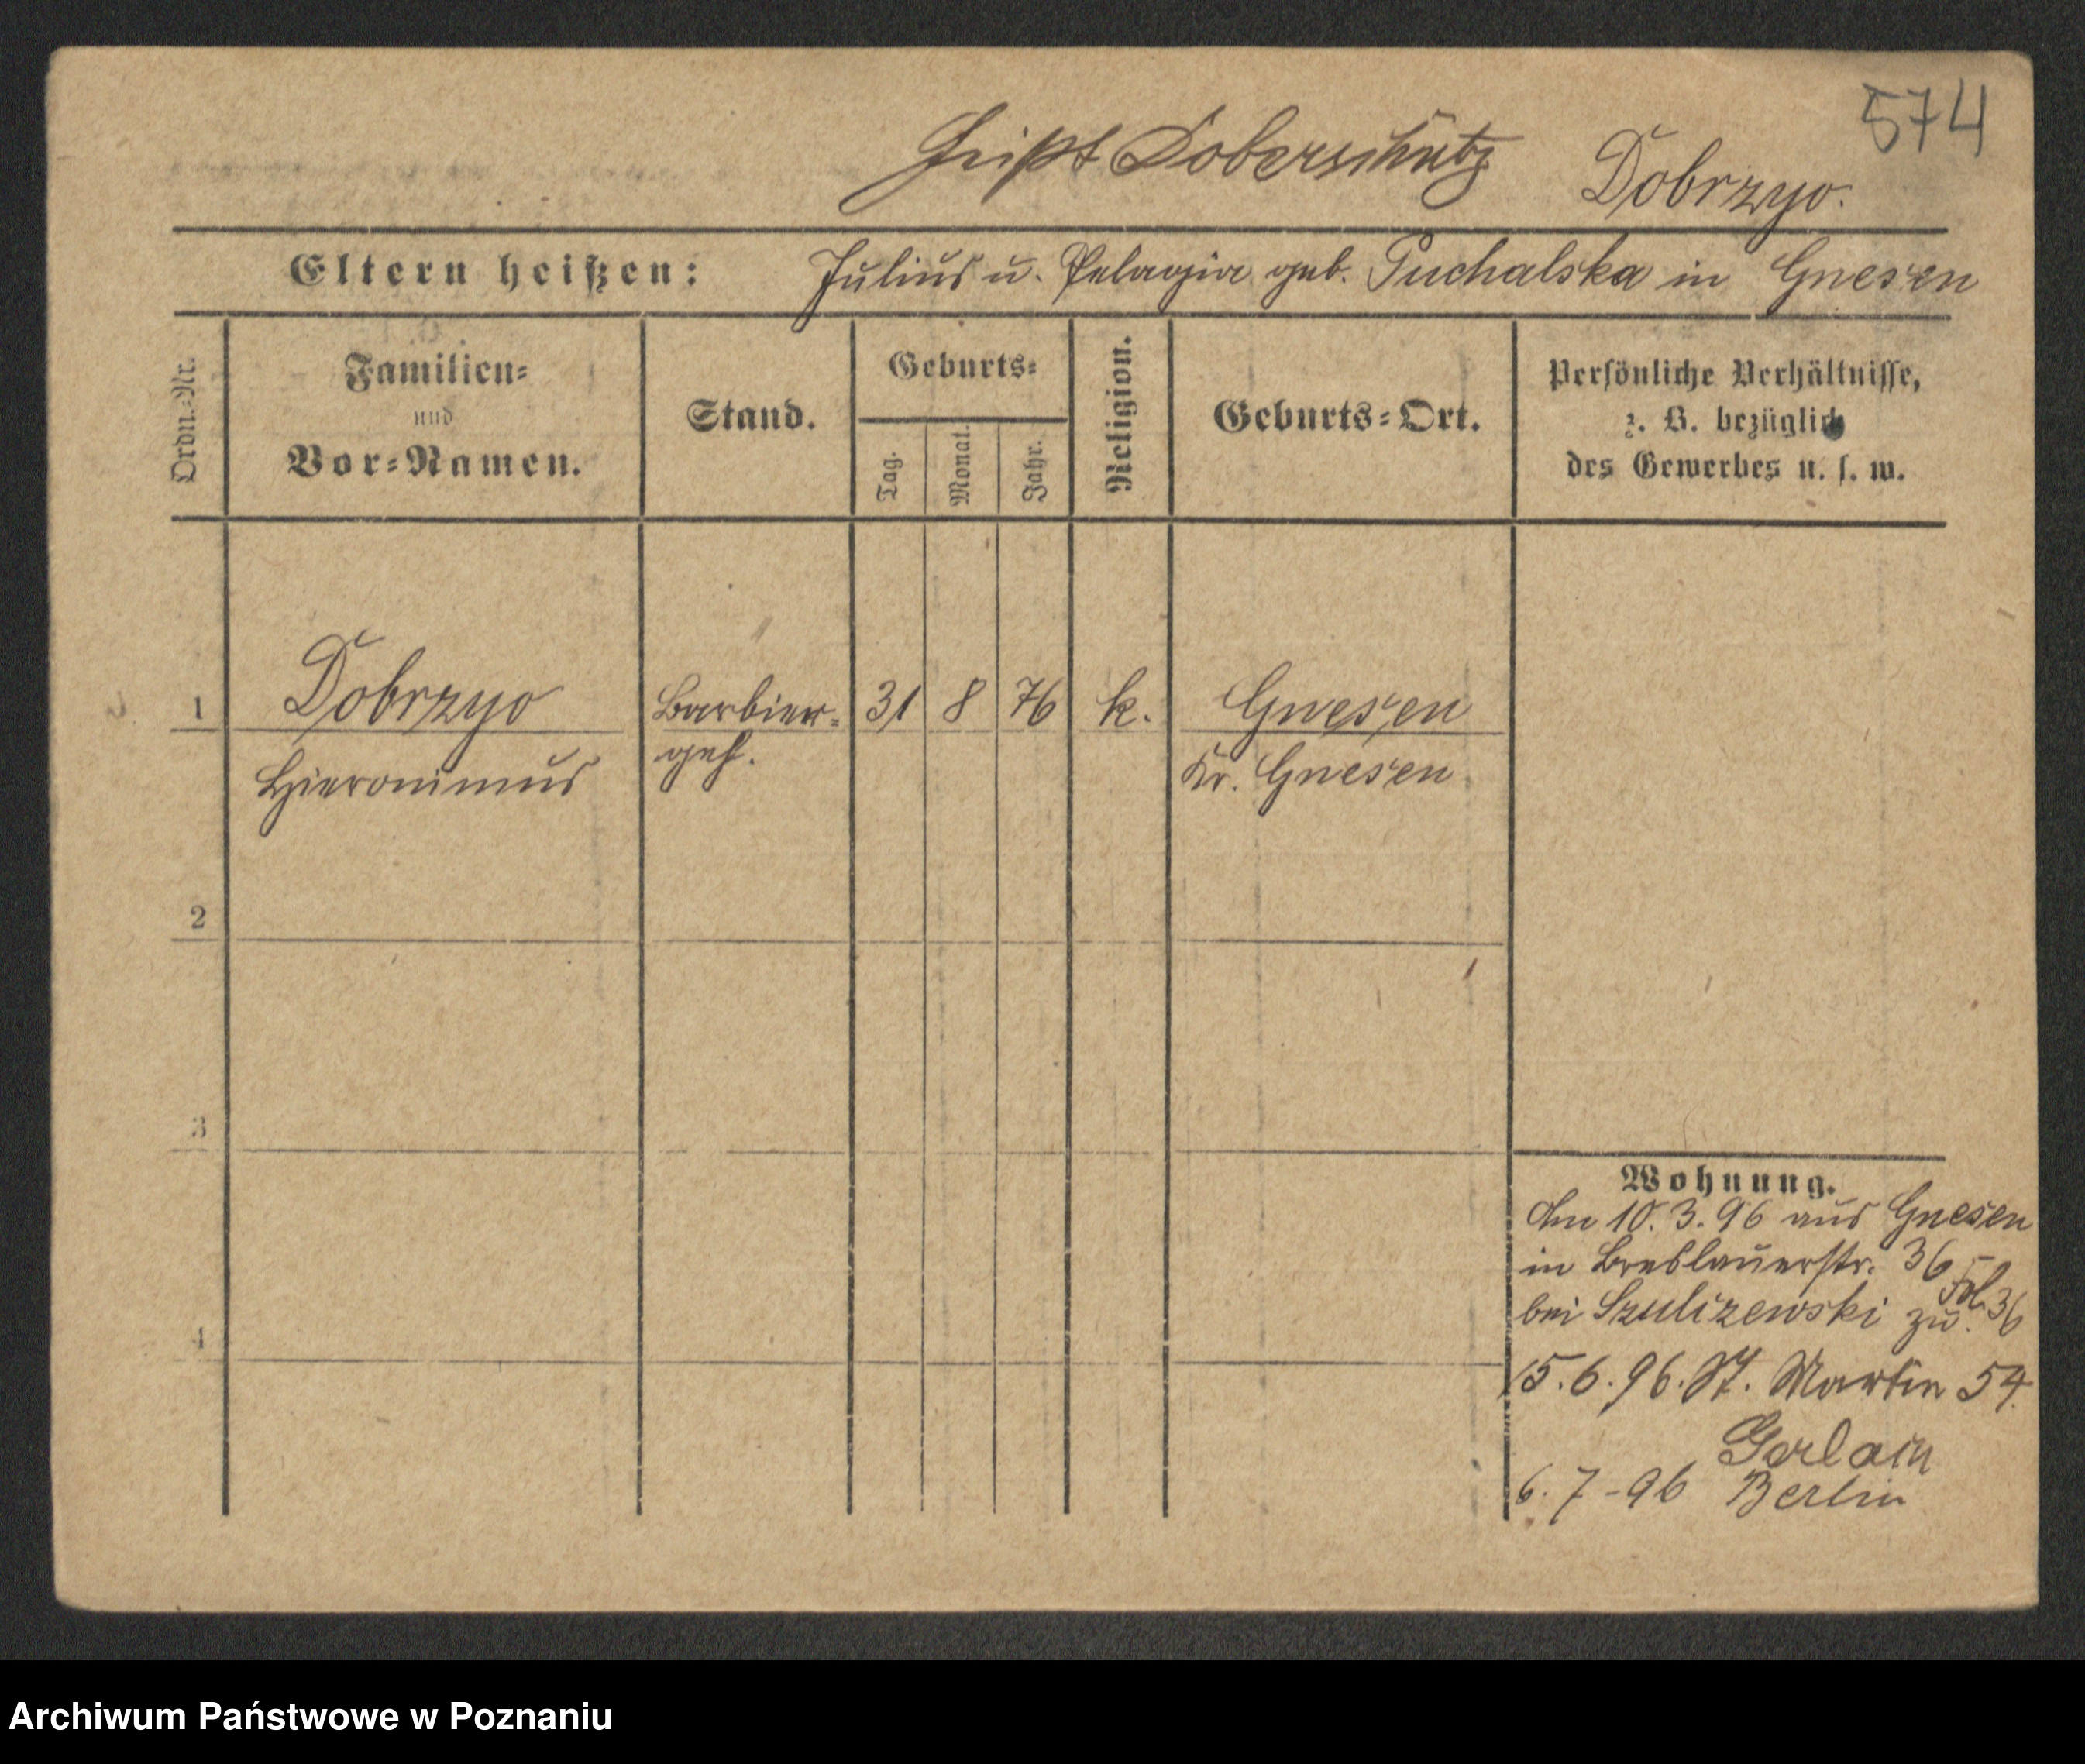 574
heißt Doberschütz Dobrzyo.
Eltern heißen: Julius u. Pelagia geb. Puchalska in Gnesen
Ordn.-Nr.
Familien-
und
Vor-Namen.
Stand.
Geburts-
Tag.
Monat.
Jahr.
Religion.
Geburts-Ort.
Persönliche Verhältnisse,
z. B. bezüglich
des Gewerbes u. s. w.
1 Dobrzyo Barbier- 31 8 76 k. Gnesen
Hieronimus geh. Kr. Gnesen
2
3
4
Wohnung.
Am 10.3.96 aus Gnesen
in Breslauerstr. 36
bei Szulizewski zu. Fol. 36
15.6.96. St. Martin 54.
6.7-96 Berlin
Archiwum Państwowe w Poznaniu